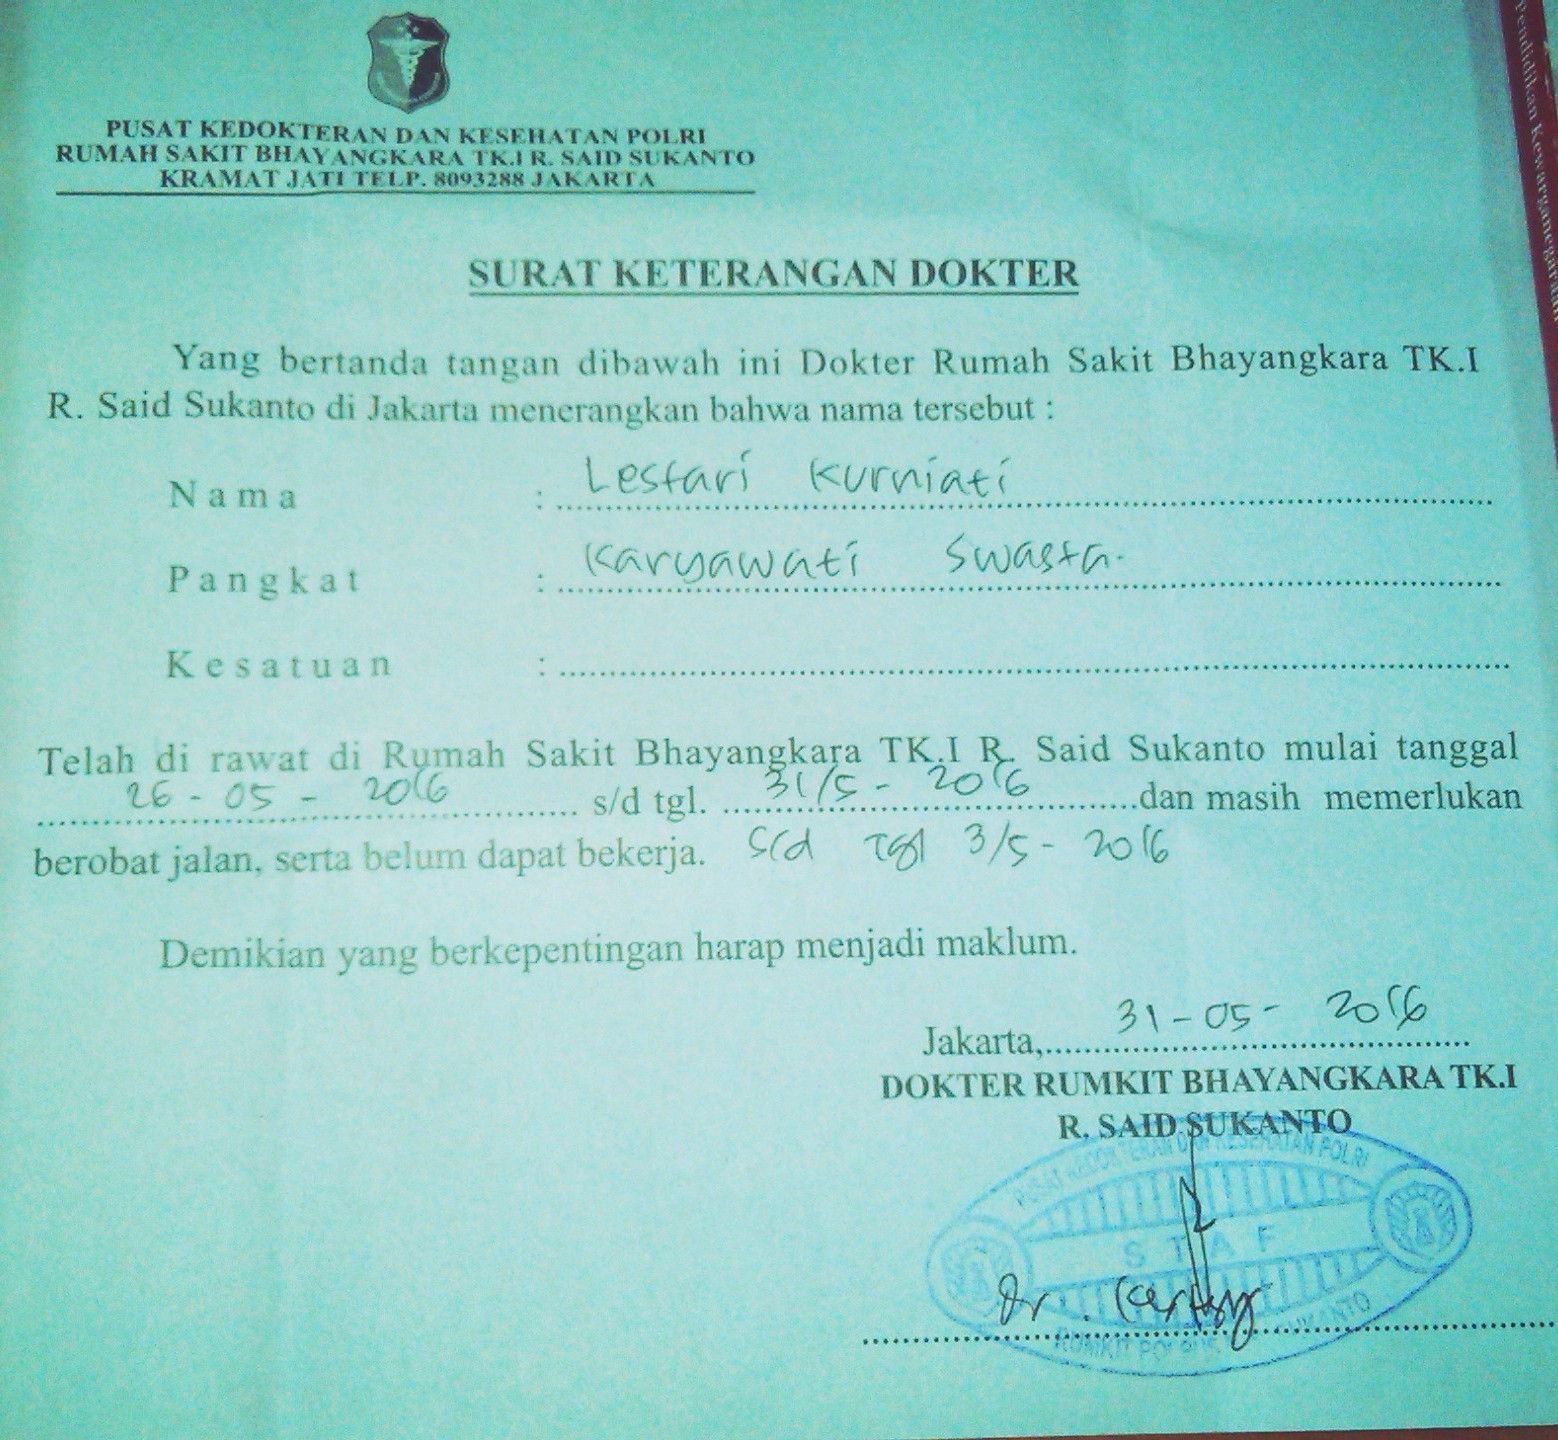 PUSAT KEDOKTERAN DAN KESEHATAN POLRI
RUMAH SAKIT BHAYANGKARA TK.I R. SAID SUKANTO
KRAMAT JATI TELP. 8093288 JAKARTA
SURAT KETERANGAN DOKTER
Yang bertanda tangan dibawah ini Dokter Rumah Sakit Bhayangkara TK.I
R. Said Sukanto di Jakarta menerangkan bahwa nama tersebut :
Nama : Lestari Kurniati
Pangkat : Karyawati Swasta.
Kesatuan :
Telah di rawat di Rumah Sakit Bhayangkara TK.I R. Said Sukanto mulai tanggal
26 - 05 - 2016 s/d tgl. 31/5 - 2016 dan masih memerlukan
berobat jalan, serta belum dapat bekerja. s/d Tgl 3/5 - 2016
Demikian yang berkepentingan harap menjadi maklum.
Jakarta, 31 - 05 - 2016
DOKTER RUMKIT BHAYANGKARA TK.I
R. SAID SUKANTO
PUSAT KEDOKTERAN DAN KESEHATAN POLRI
STAF
dr.
RUMKIT SUKANTO
Pendidikan Kewarganegaraan